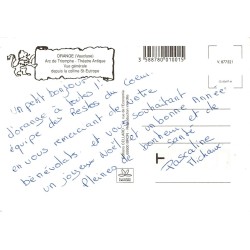 ORANGE (Vaucluse)
Arc de Triomphe - Théâtre Antique
Vue générale
depuis la colline St Eutrope
3 588780 010015
Un petit bonjour
d'orange à toute l'
équipe des Restos du Coeur.
en vous remerciant de votre
bénévolat et vous souhaitant
un joyeux Noël et une bonne Année
Pleine de bonheur et santé
Pascaline